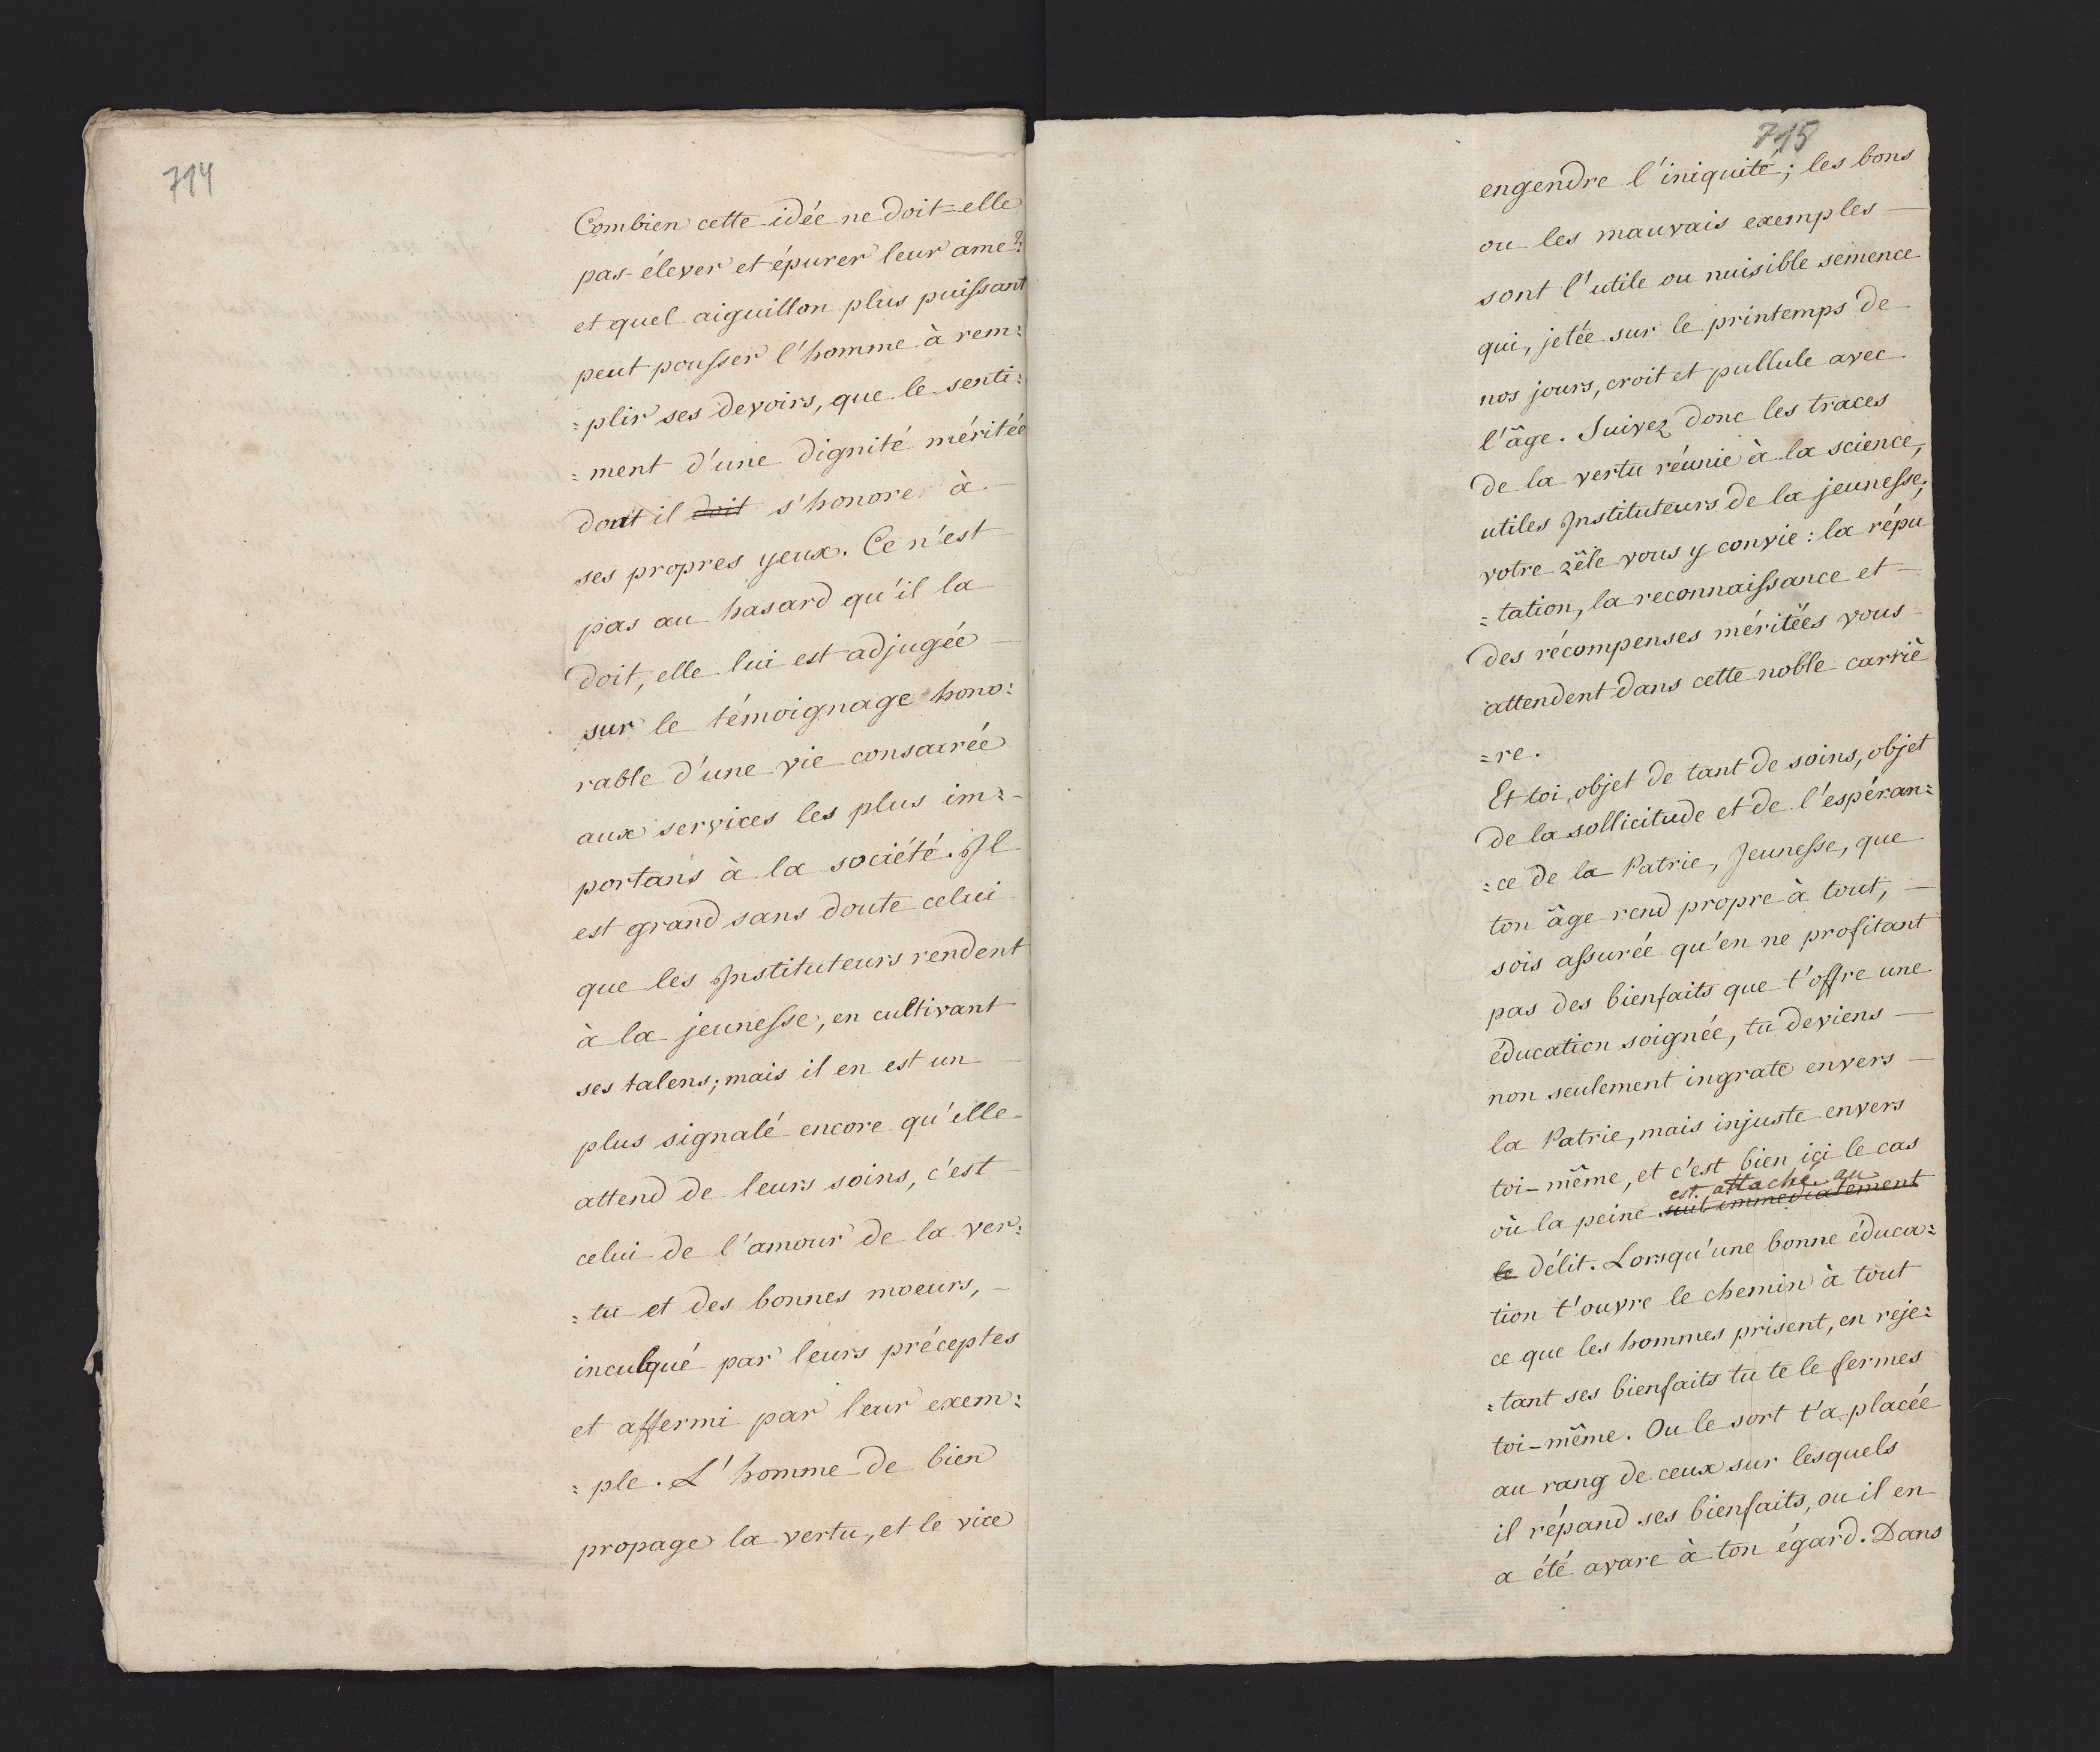 714
Combien cette idée ne doit=elle
pas élever et épurer leur ame?
et quel aiguillon plus puissant
peut pousser l'homme à rem:
:plir ses devoirs, que le senti:
:ment d'une dignité méritée
dont il doit s'honorer à
ses propres yeux. Ce n'est
pas au hasard qu'il la
doit, elle lui est adjugée
sur le témoignage hono:
rable d'une vie consacrée
aux services les plus im:
portans à la société. Il
est grand sans doute celui
que les Instituteurs rendent
à la jeunesse, en cultivant
ses talens; mais il en est un
plus signalé encore qu'elle
attend de leurs soins, c'est
celui de l'amour de la ver:
:tu et des bonnes moeurs,
inculqué par leurs préceptes
et affermi par leur exem:
:ple. L'homme de bien
propage la vertu, et le vice
715
engendre l'iniquité; les bons
ou les mauvais exemples
sont l'utile ou nuisible semence
qui, jetée sur le printemps de
nos jours, croit et pullule avec
l'âge. Suivez donc les traces
de la vertu réunie à la science,
utiles Instituteurs de la jeunesse;
votre zêle vous y convie: la répu
:tation, la reconnaissance et
des récompenses méritées vous
attendent dans cette noble carriè
=re.
Et toi, objet de tant de soins, objet
de la sollicitude et de l'espéran:
:ce de la Patrie, Jeunesse, que
ton âge rend propre à tout,
sois assurée qu'en ne profitant
pas des bienfaits que t'offre une
éducation soignée, tu deviens
non seulement ingrate envers
la Patrie, mais injuste envers
toi-même, et c'est bien ici le cas
est attaché au
où la peine suit immediatement
le délit. Lorsqu'une bonne éduca:
tion t'ouvre le chemin à tout
ce que les hommes prisent, en reje:
:tant ses bienfaits tu te le fermes
toi-même. Ou le sort t'a placée
au rang de ceux sur lesquels
il répand ses bienfaits, ou il en
a été avare à ton égard. Dans